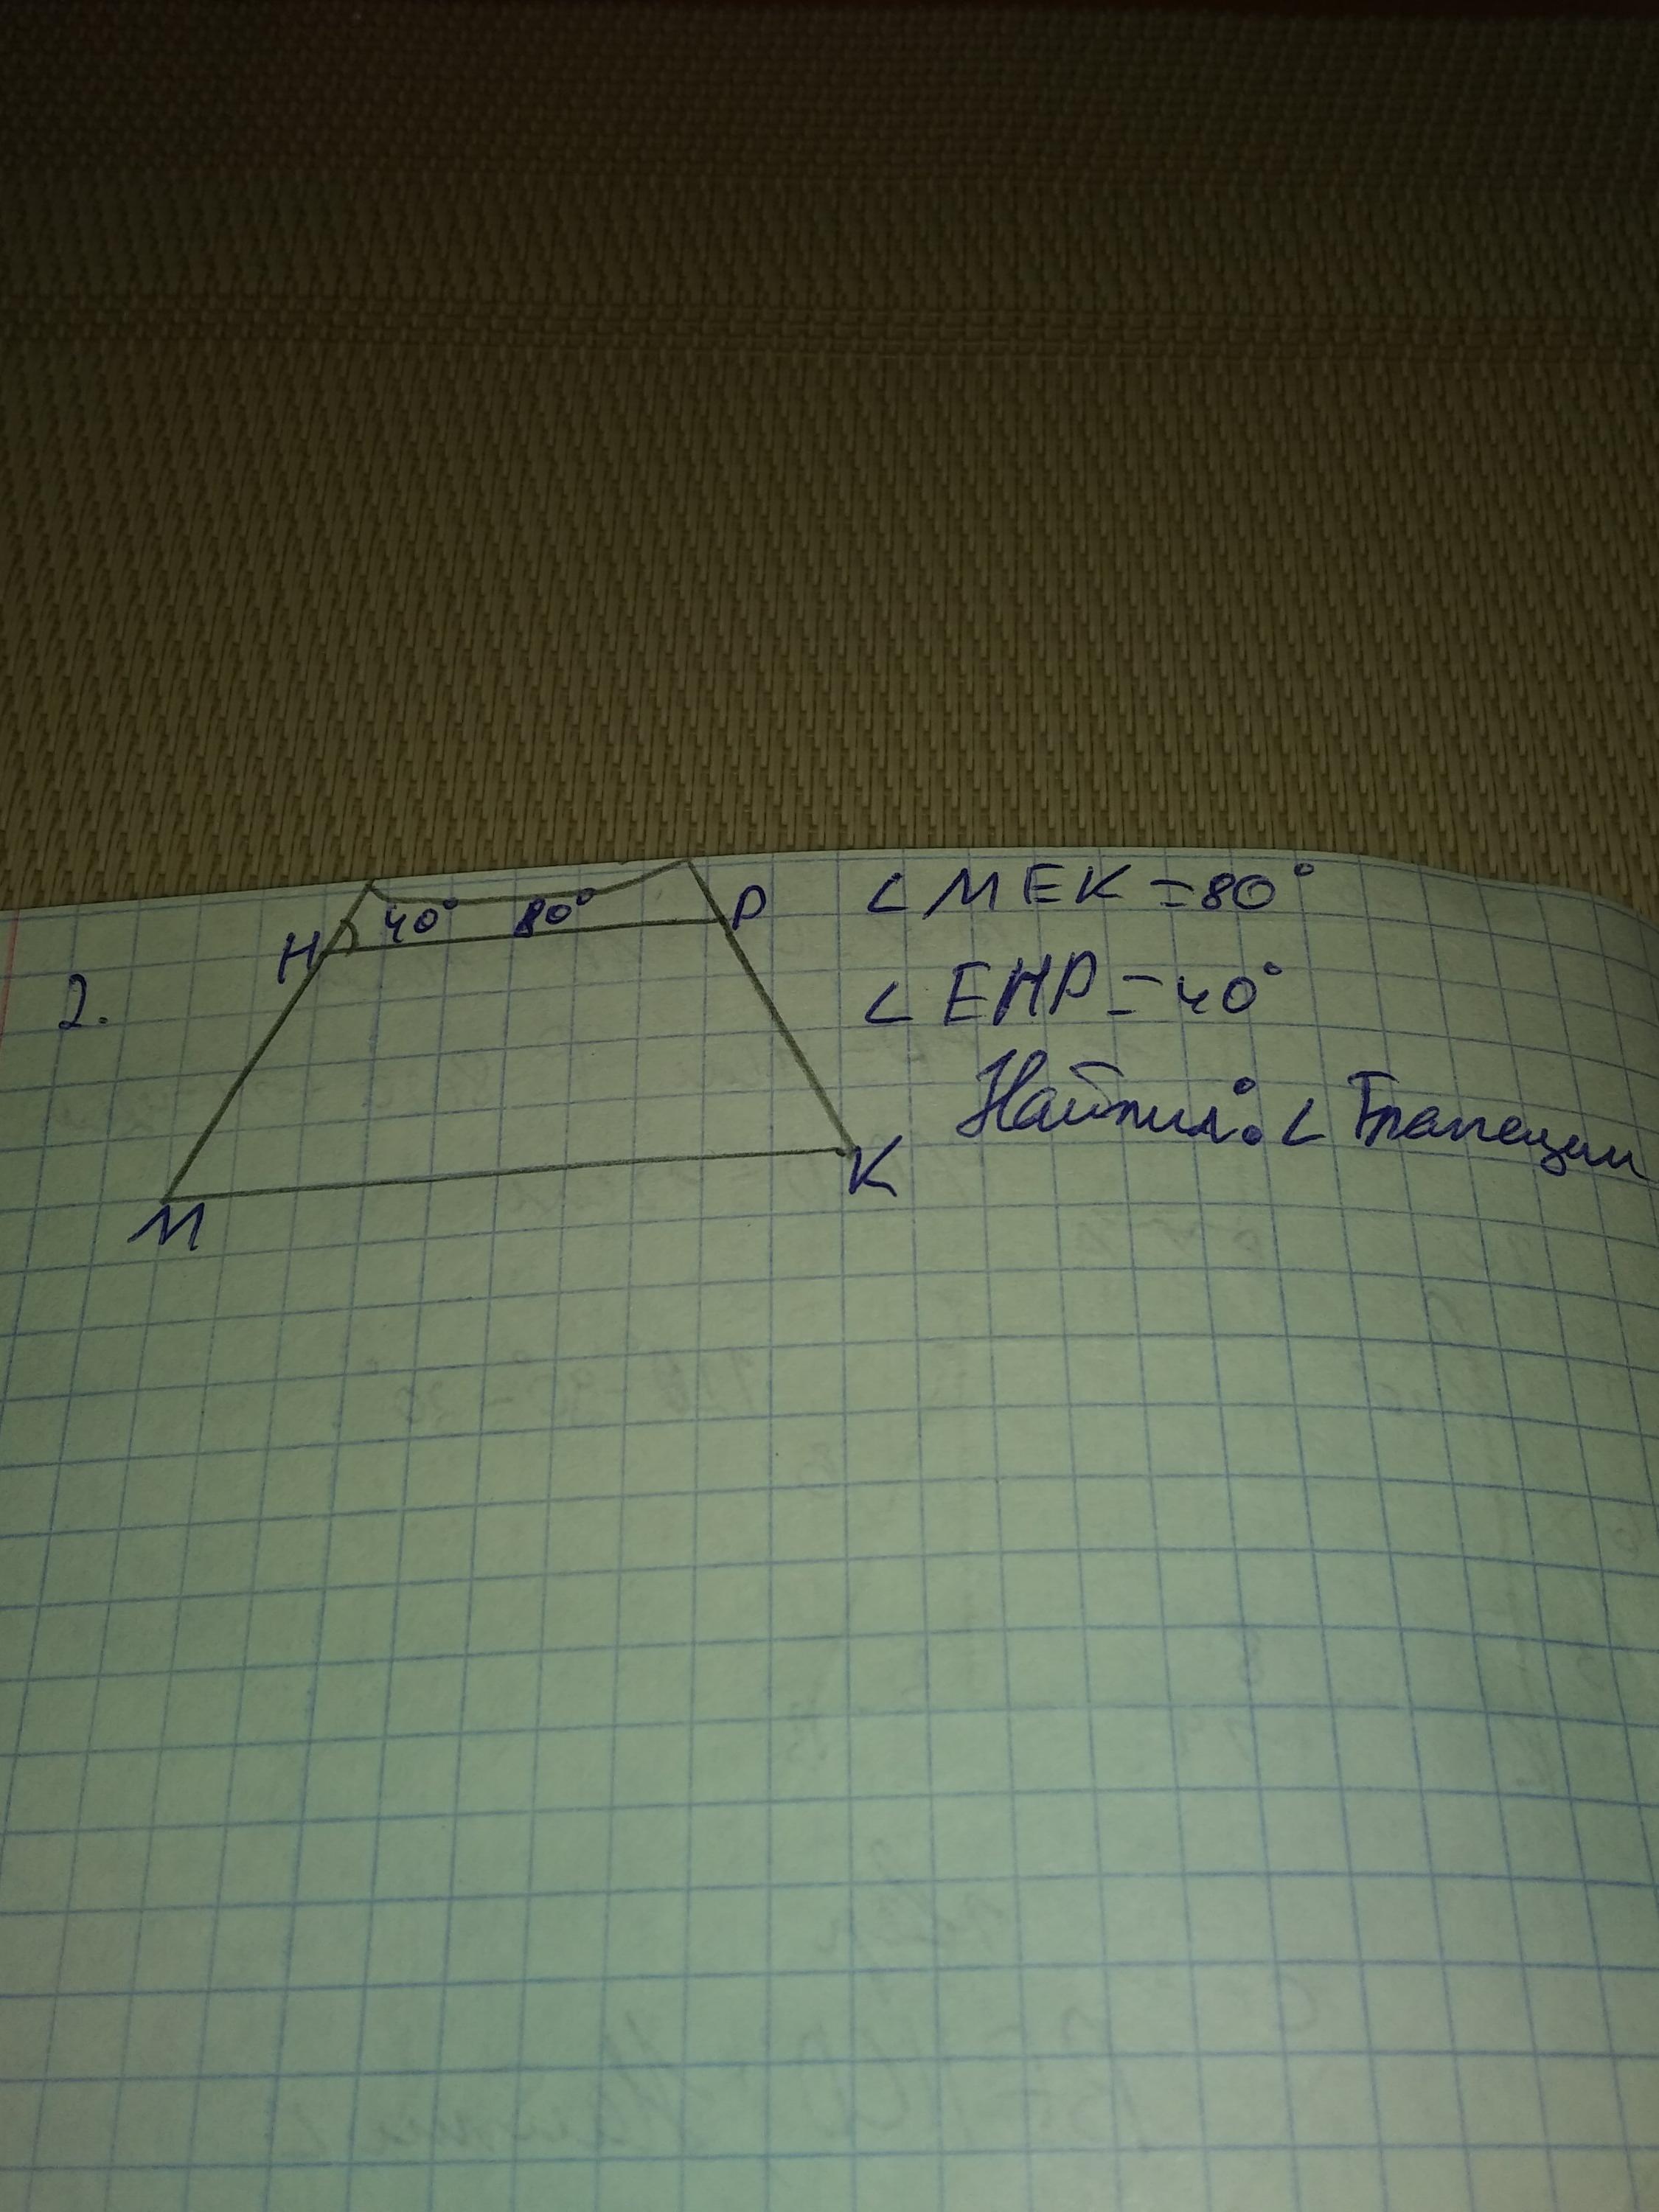 2.
H
40°
80°
P
M
K
∠ MEK = 80°
∠ EHP = 40°
Найти: ∠ Трапеции